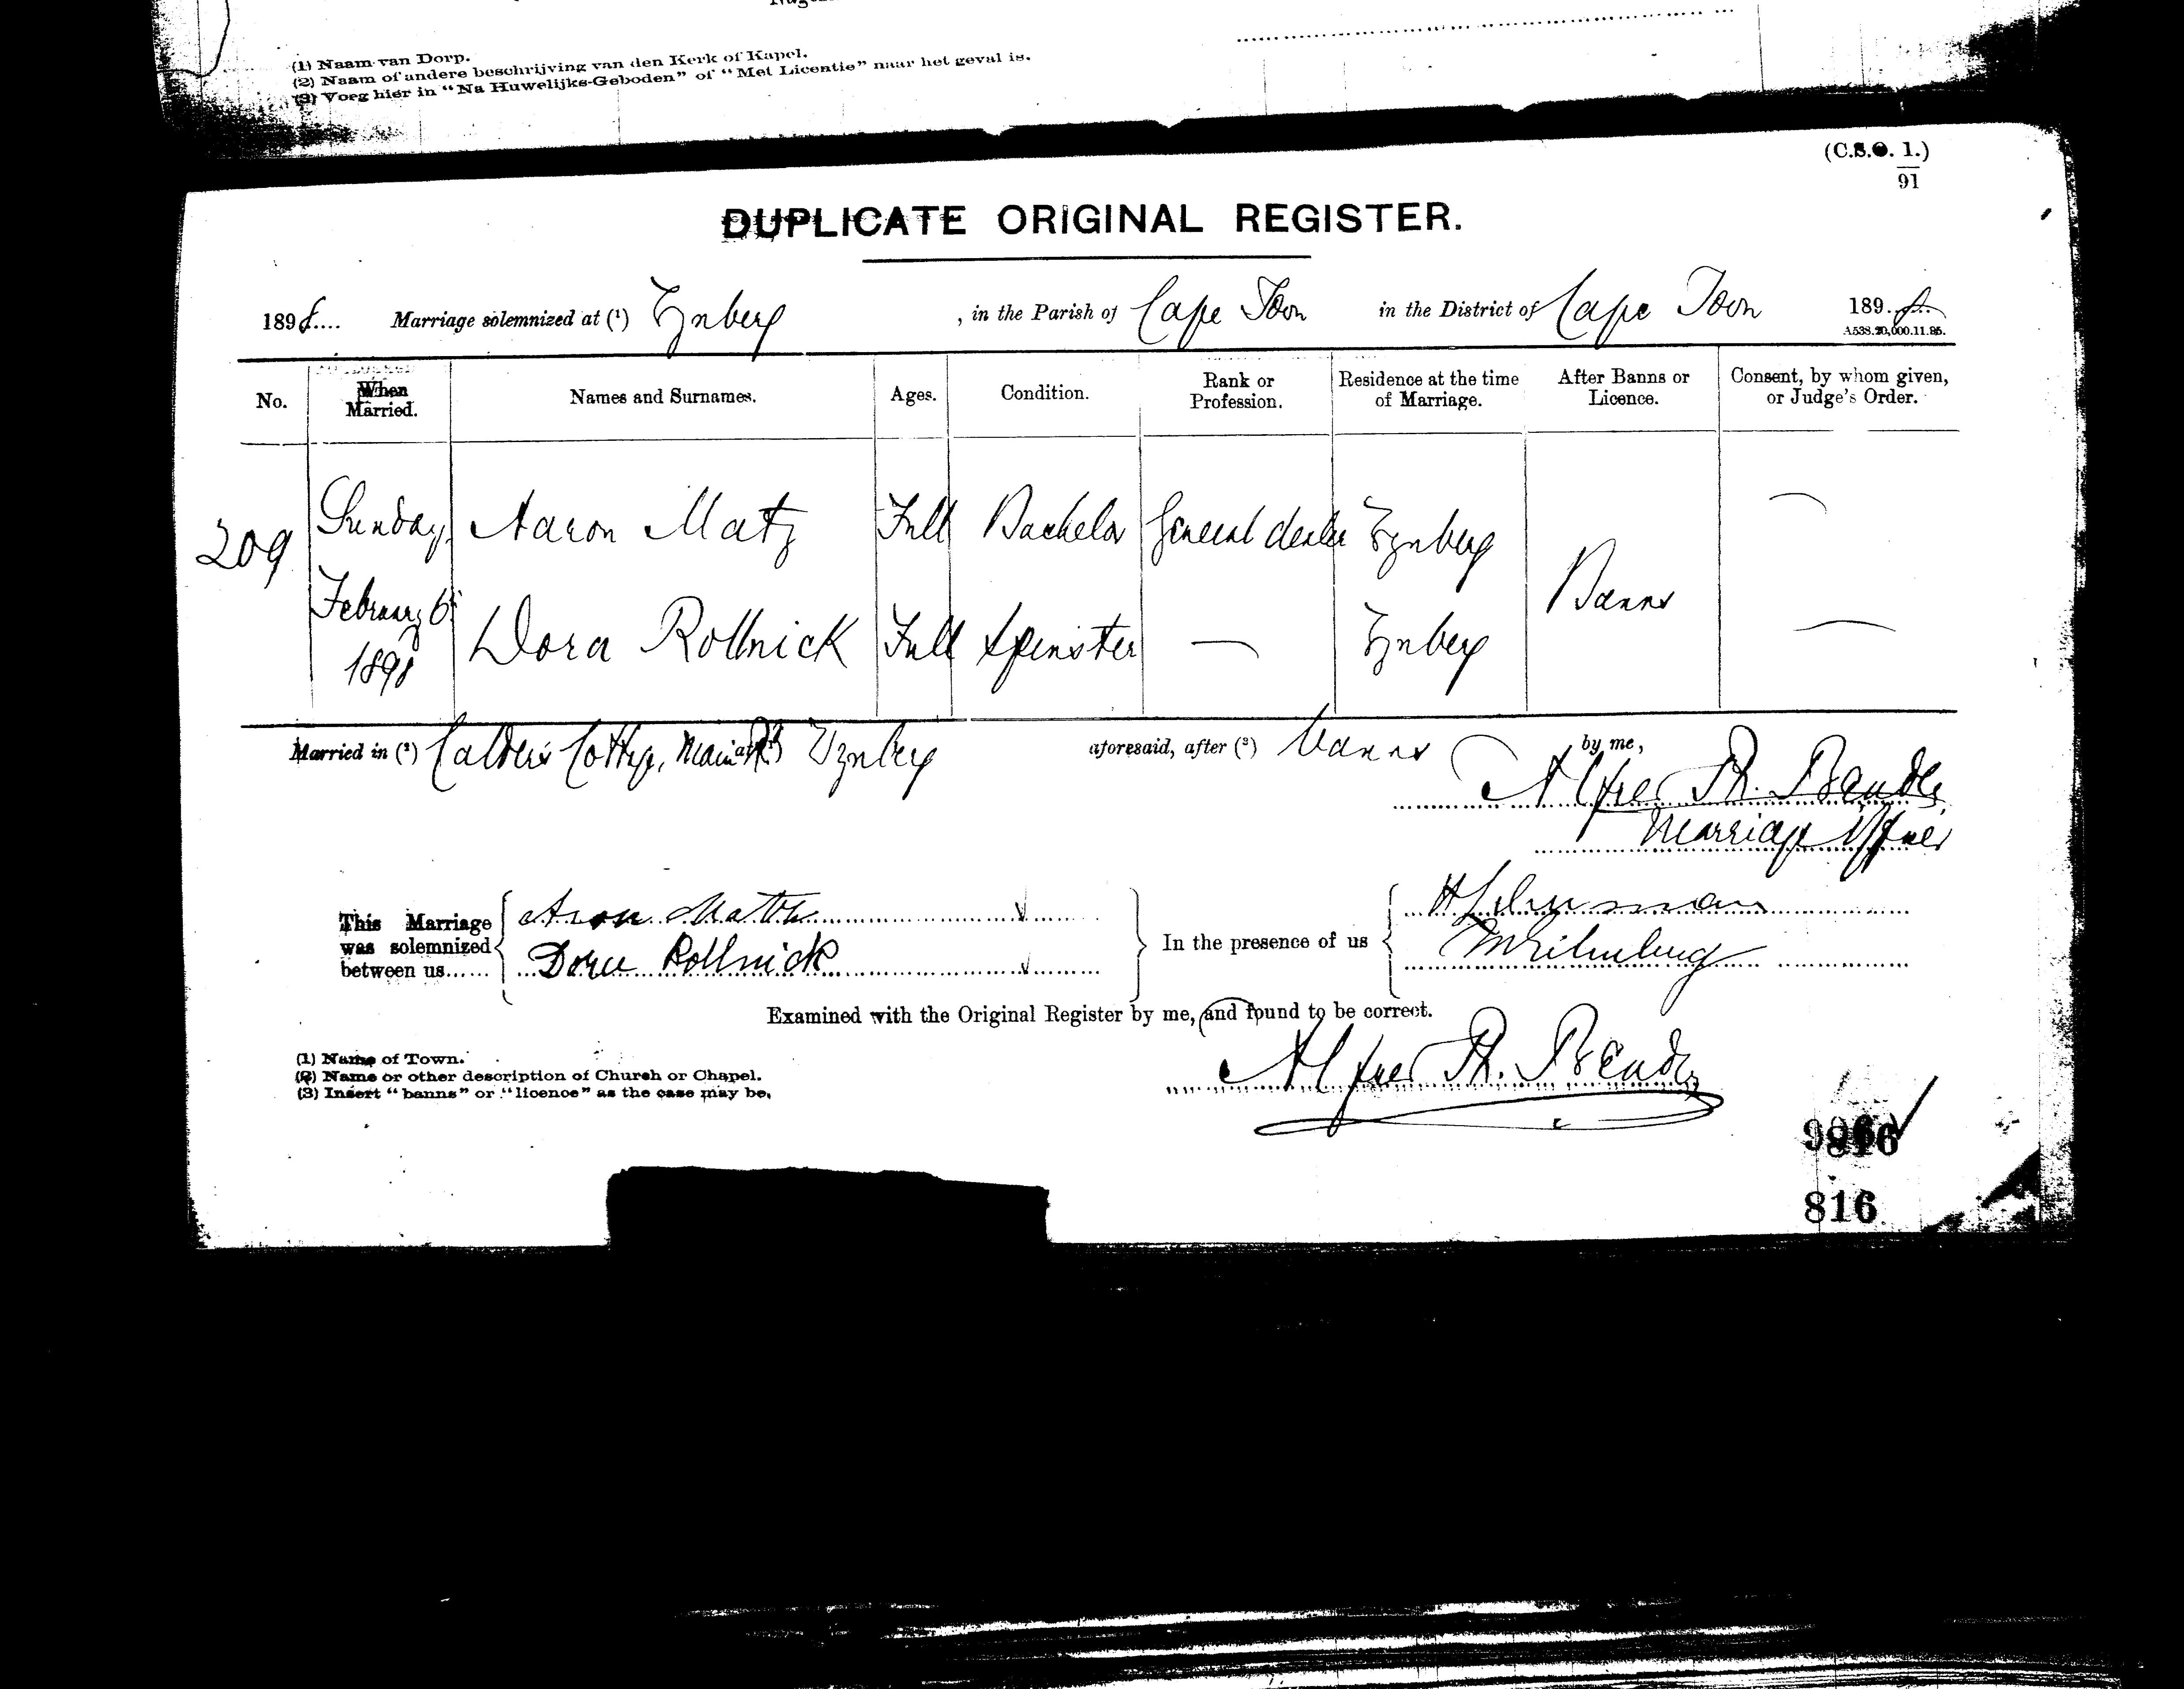 (1) Naam van Dorp.
(2) Naam of andere beschrijving van den Kerk of Kapel.
(3) Voeg hier in "Na Huwelijks-Geboden" of "Met Licentie" naar het geval is.
(C.S.O. 1.)
91
DUPLICATE ORIGINAL REGISTER.
1898.... Marriage solemnized at (1) Wynberg, in the Parish of Cape Town in the District of Cape Town 1898
A538.20,000.11.95.
No. When Married. Names and Surnames. Ages. Condition. Rank or Profession. Residence at the time of Marriage. After Banns or Licence. Consent, by whom given, or Judge's Order.
209 Sunday, Aaron Matz Full Bachelor General dealer Wynberg
February 6 1898 Dora Rollnick Full Spinster — Wynberg Banns
Married in (2) Calder's Cottage, Main Rd at Wynberg aforesaid, after (3) banns by me,
Alfred P. Bender,
Marriage Officer
This Marriage was solemnized between us...... Aron In the presence of us
Dora Rollnick
Examined with the Original Register by me, and found to be correct.
Alfred P. Bender
(1) Name of Town.
(2) Name or other description of Church or Chapel.
(3) Insert "banns" or "licence" as the case may be.
816